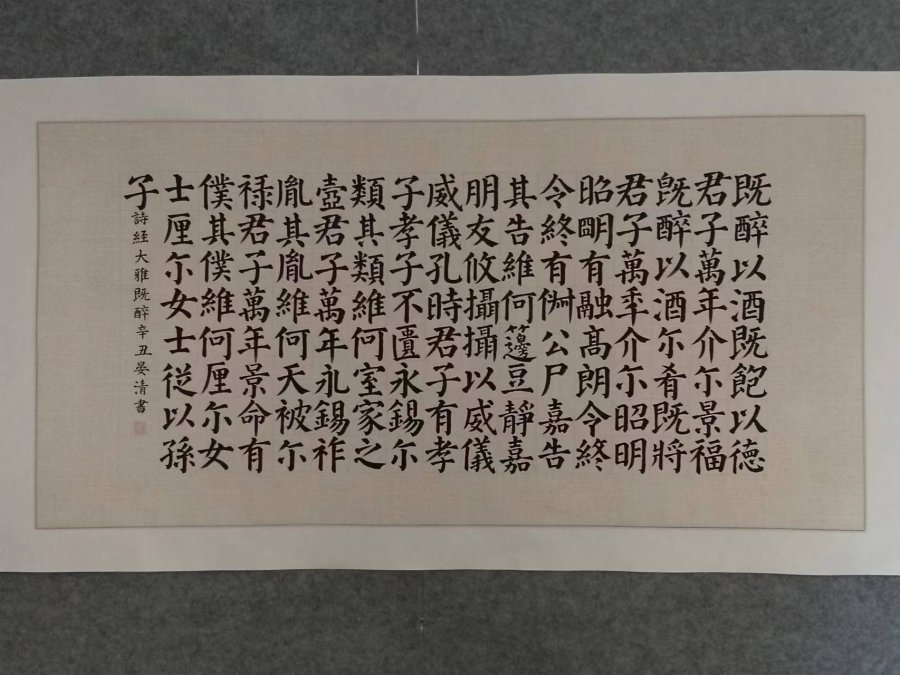 既醉以酒既飽以德
君子萬年介尒景福
旣醉以酒尒肴既將
君子萬秊介尒昭明
昭朙有融髙朗令終
令終有俶公尸嘉告
其告維何籩豆靜嘉
朋友攸攝攝以威儀
威儀孔時君子有孝
子孝子不匱永錫尒
類其類維何室家之
壼君子萬年永錫祚
胤其胤維何天被尒
禄君子萬年景命有
僕其僕維何厘尒女
士厘尒女士従以孫
子
詩経大雅既醉辛丑晏清書